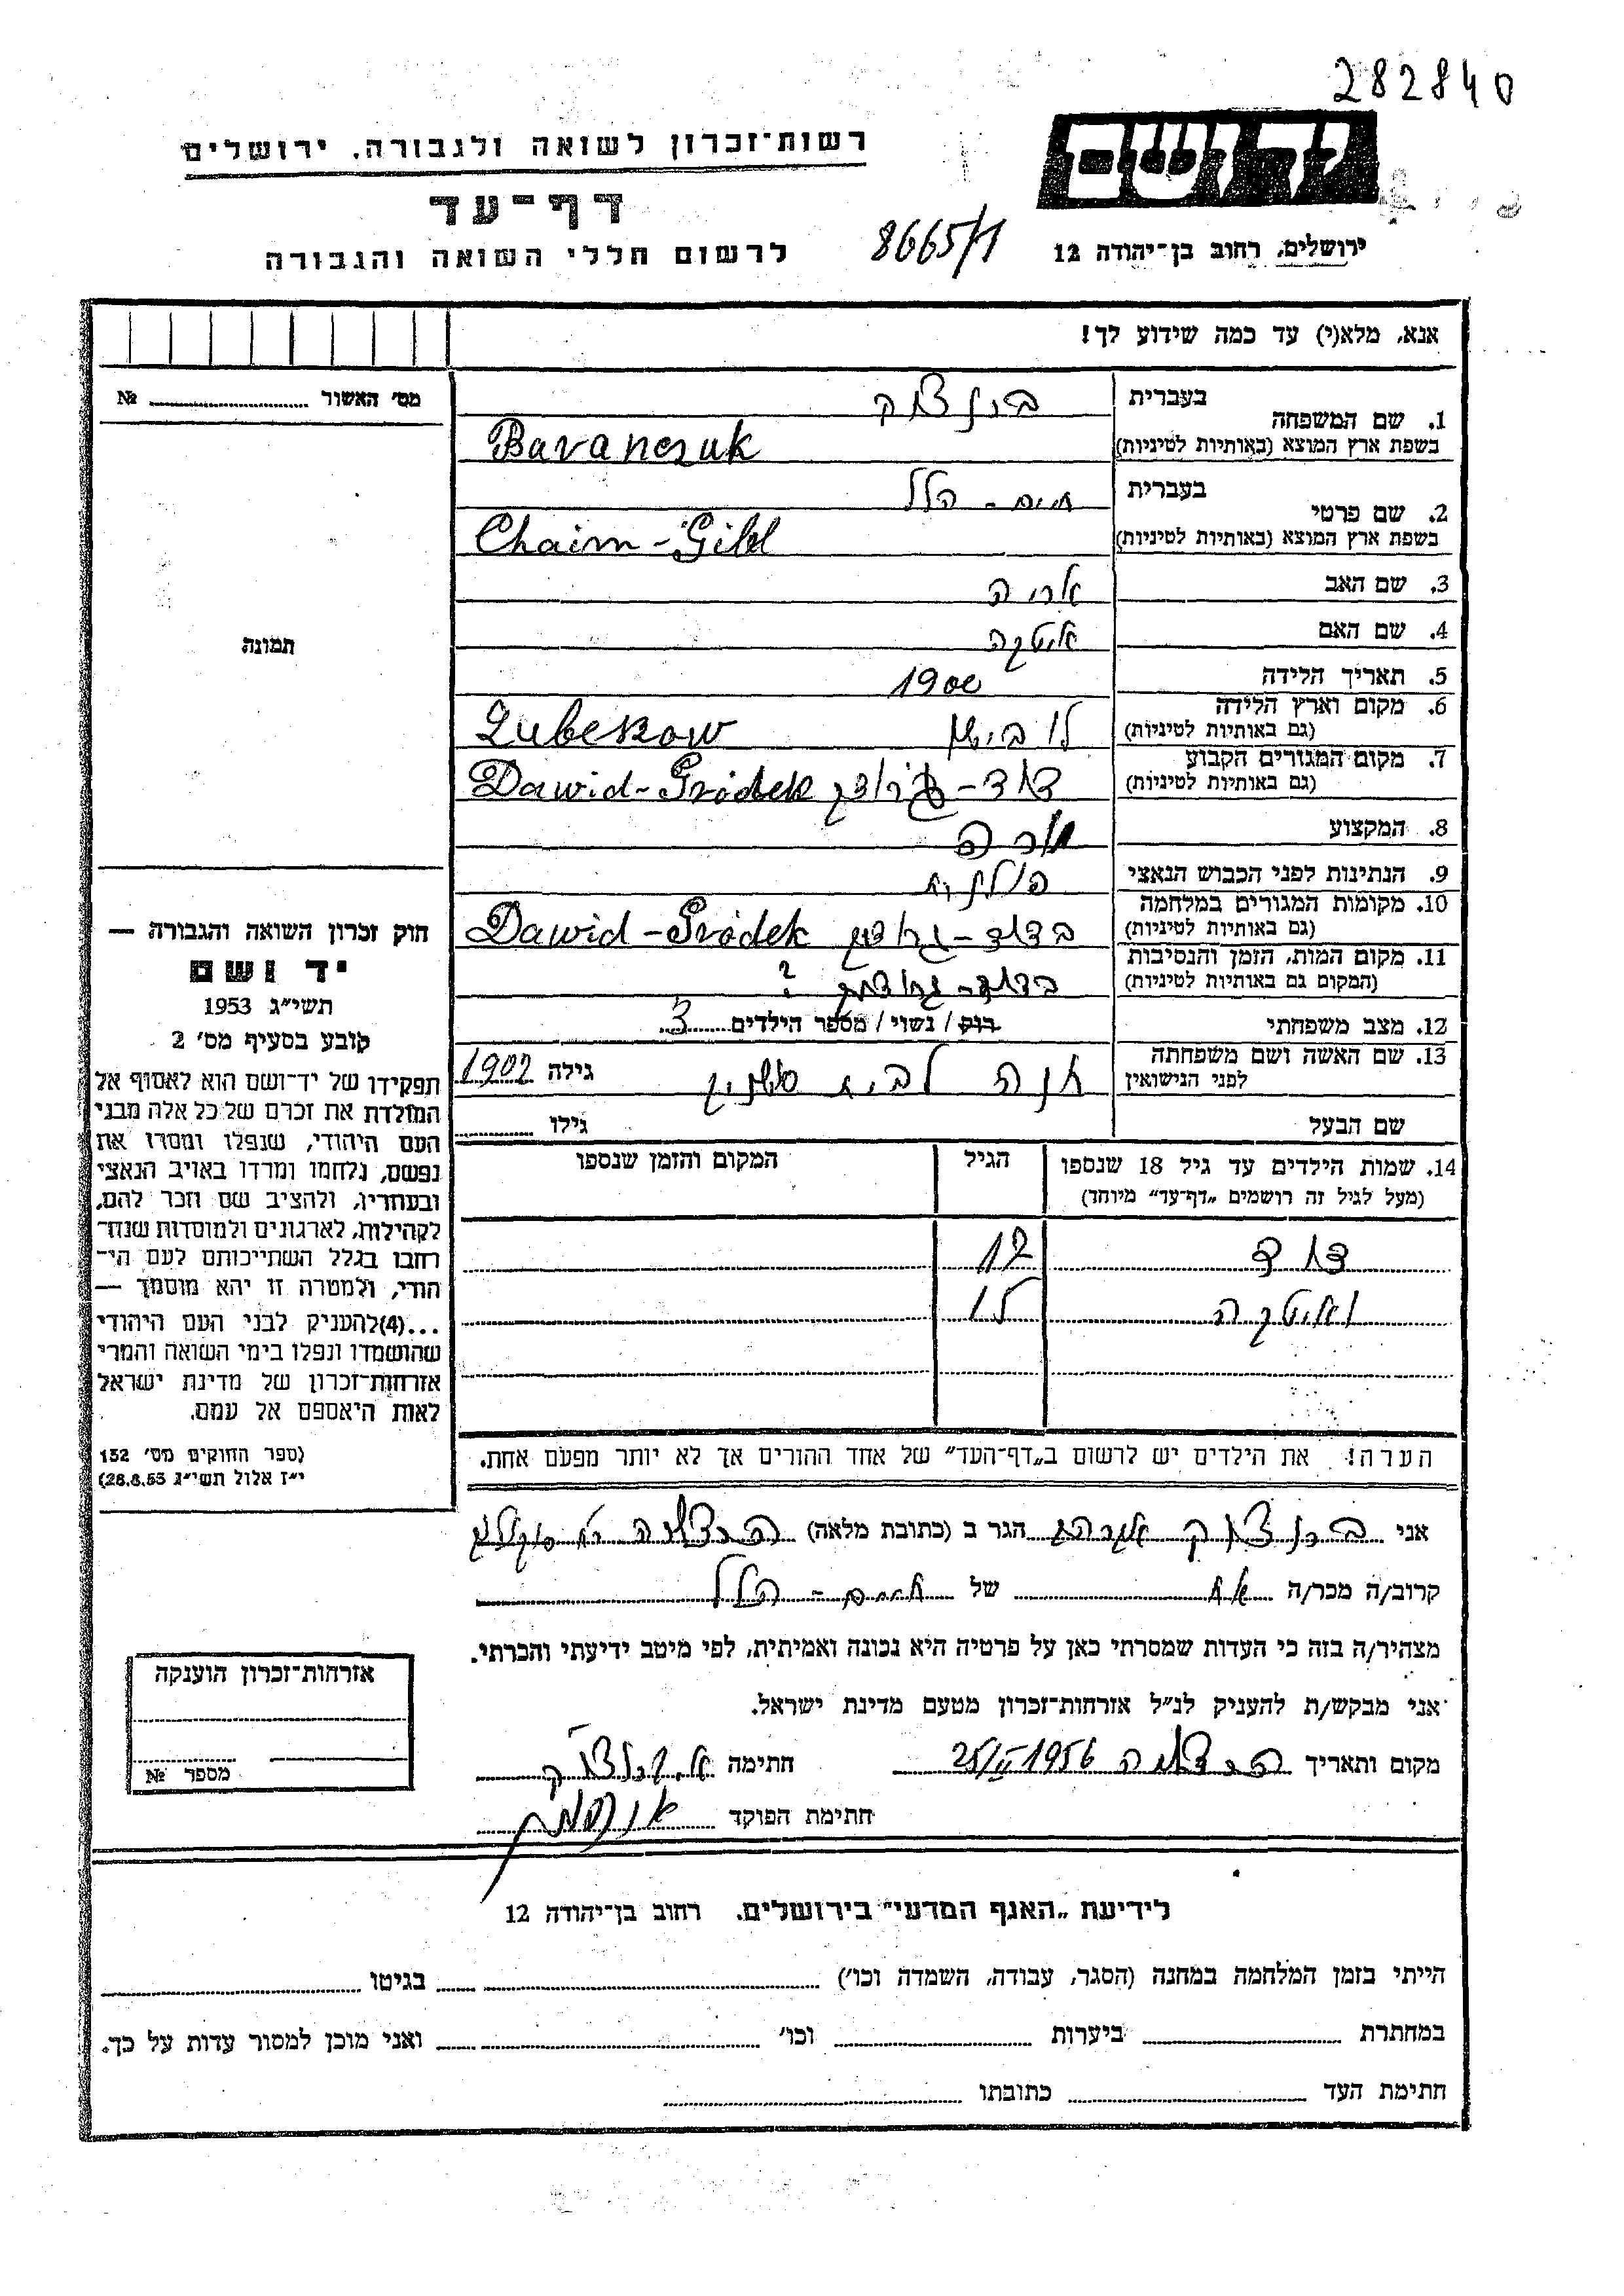 282840
יד ושם
רשות־זכרון לשואה ולגבורה, ירושלים
דף־עד
לרשום חללי השואה והגבורה
8665/1
ירושלים, רחוב בן־יהודה 12
אנא, מלא(י) עד כמה שידוע לך!
מס' האשור №
1. שם המשפחה
בעברית
בשפת ארץ המוצא (באותיות לטיניות)
Baranczuk
2. שם פרטי
בעברית חיים - הלל
בשפת ארץ המוצא (באותיות לטיניות) Chaim-Gilel
3. שם האב אריה
4. שם האם איטקה
5. תאריך הלידה 1900
6. מקום וארץ הלידה
(גם באותיות לטיניות)
Lubeszow
7. מקום המגורים הקבוע
(גם באותיות לטיניות)
דוד - גרודק Dawid-Gródek
8. המקצוע מורה
9. הנתינות לפני הכבוש הנאצי פולנית
10. מקומות המגורים במלחמה
(גם באותיות לטיניות)
בדוד - גרודק Dawid-Gródek
11. מקום המות, הזמן והנסיבות
(המקום גם באותיות לטיניות)
בדוד - גרודק ?
12. מצב משפחתי רוק / נשוי / מספר הילדים 3
13. שם האשה ושם משפחתה
לפני הנישואין
חנה לבית גילה 1902
שם הבעל גילו
14. שמות הילדים עד גיל 18 שנספו
(מעל לגיל זה רושמים „דף־עד” מיוחד)
הגיל
המקום והזמן שנספו
דוד 12
ואיטקה 15
הערה! את הילדים יש לרשום ב„דף־העד” של אחד ההורים אך לא יותר מפעם אחת.
תמונה
חוק זכרון השואה והגבורה —
יד ושם
תשי״ג 1953
קובע בסעיף מס' 2
תפקידו של יד־ושם הוא לאסוף אל
המולדת את זכרם של כל אלה מבני
העם היהודי, שנפלו ומסרו את
נפשם, נלחמו ומרדו באויב הנאצי
ובעוזריו, ולהציב שם וזכר להם,
לקהילות, לארגונים ולמוסדות שנח־
רבו בגלל השתייכותם לעם הי־
הודי, ולמטרה זו יהא מוסמך —
...(4) להעניק לבני העם היהודי
שהושמדו ונפלו בימי השואה והמרי
אזרחות־זכרון של מדינת ישראל
לאות היאספם אל עמם.
(ספר החוקים מס' 132
י״ז אלול תשי״ג 28.8.53)
אני ברנצוק אברהם הגר ב (כתובת מלאה) הרצליה רח סוקולוב
קרוב/ה מכר/ה אח של חיים - הלל
מצהיר/ה בזה כי העדות שמסרתי כאן על פרטיה היא נכונה ואמיתית, לפי מיטב ידיעתי והכרתי.
אני מבקש/ת להעניק לנ״ל אזרחות־זכרון מטעם מדינת ישראל.
מקום ותאריך הרצליה 25/II 1956 חתימה א. ברנצוק
חתימת הפוקד
אזרחות־זכרון הוענקה
מספר №
לידיעת „האגף המדעי” בירושלים, רחוב בן־יהודה 12
הייתי בזמן המלחמה במחנה (הסגר, עבודה, השמדה וכו') בגיטו
במחתרת ביערות וכו' ואני מוכן למסור עדות על כך.
חתימת העד כתובתו